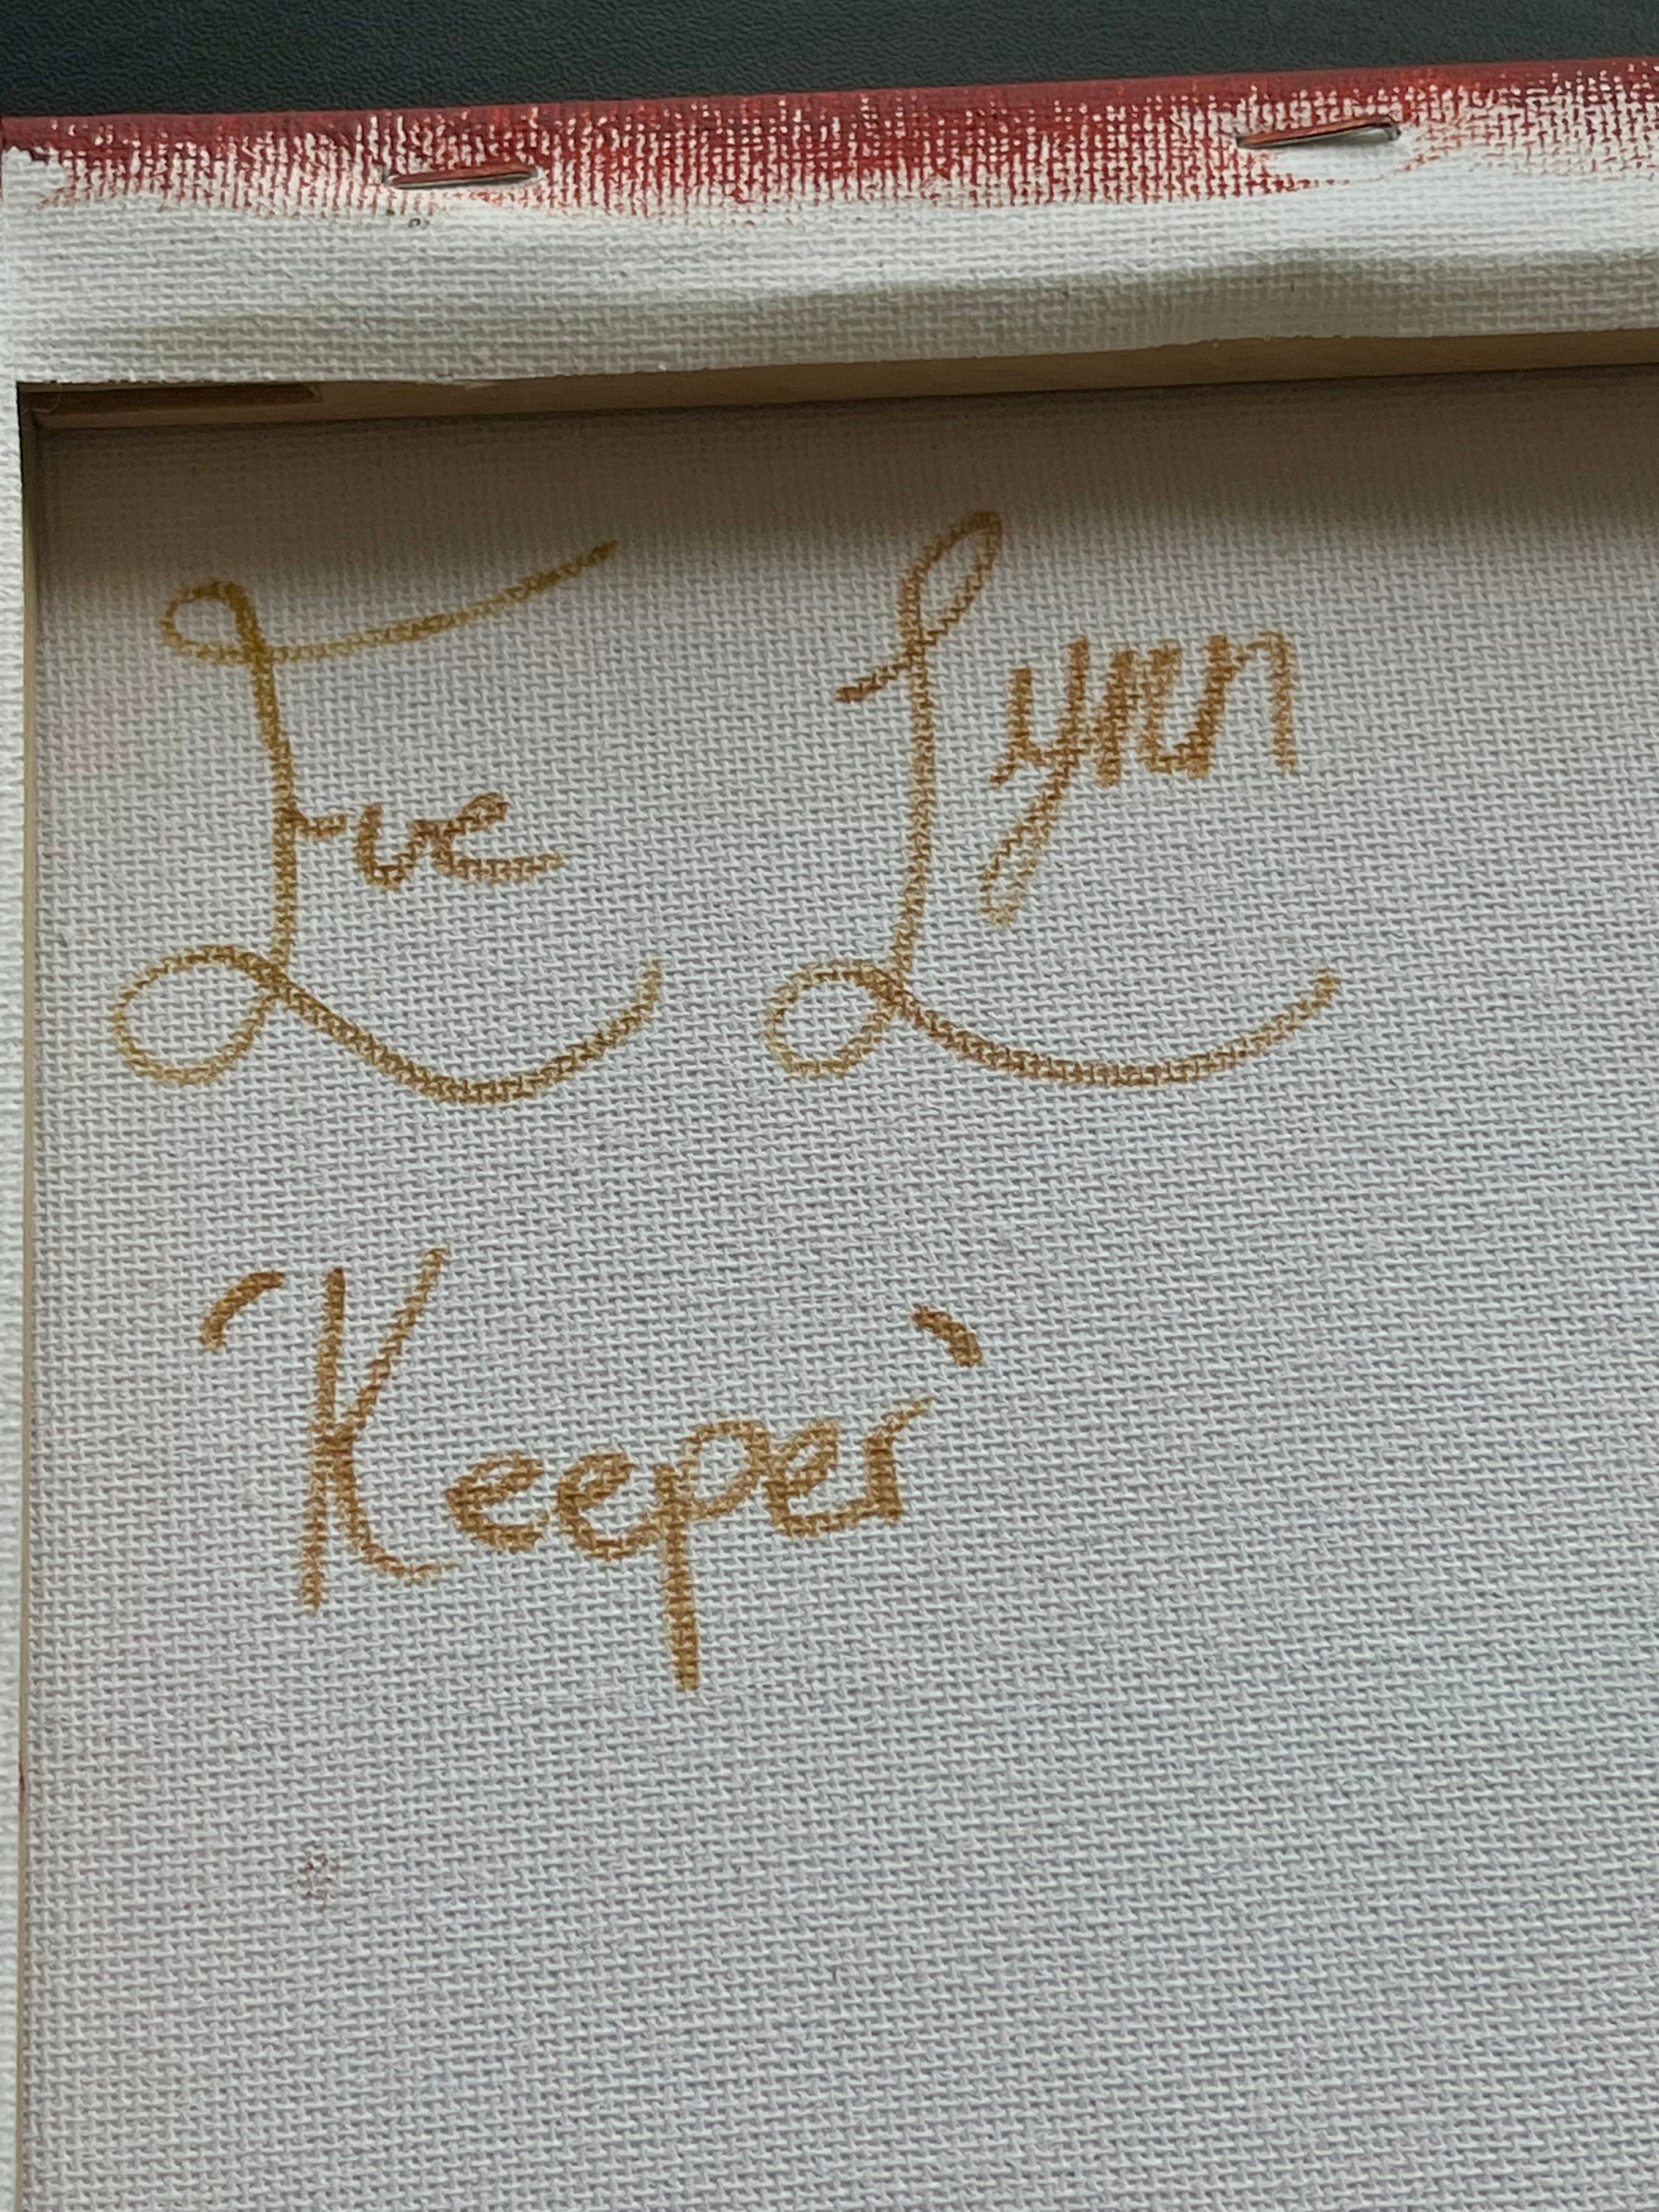 Eve Lynn
'Keeper'